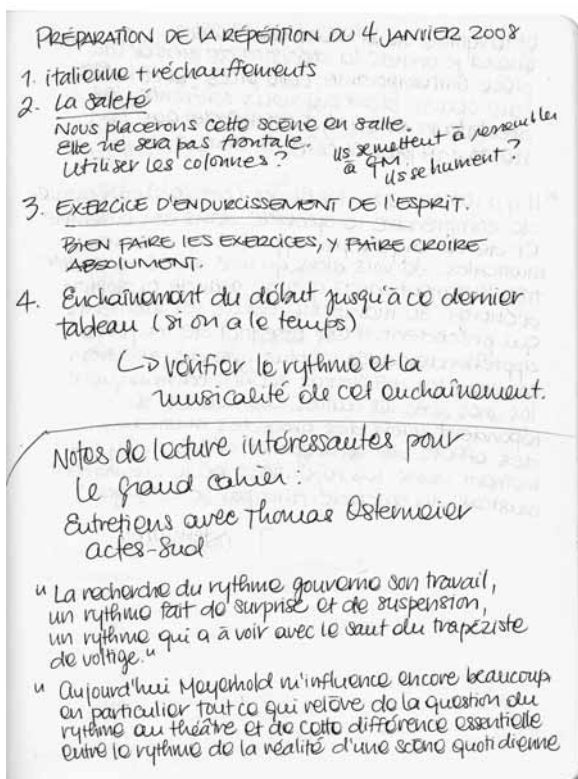 PRÉPARATION DE LA RÉPÉTITION DU 4 JANVIER 2008
1. italienne + réchauffements
2. La saleté
Nous placerons cette scène en salle.
Elle ne sera pas frontale.
Utiliser les colonnes?
Ils se mettent à ressembler
à GM.
Ils se hument?
3. EXERCICE D'ENDURCISSEMENT DE L'ESPRIT.
BIEN FAIRE LES EXERCICES, Y FAIRE CROIRE
ABSOLUMENT.
4. Enchaînement du début jusqu'à ce dernier
tableau (si on a le temps)
↳ vérifier le rythme et la
musicalité de cet enchaînement.
Notes de lecture intéressantes pour
Le grand cahier
Entretiens avec Thomas Ostermeier
actes-sud
" La recherche du rythme gouverne son travail,
un rythme fait de surprise et de suspension,
un rythme qui a à voir avec le saut du trapéziste
de voltige. "
" Aujourd'hui Meyerhold m'influence encore beaucoup
en particulier tout ce qui relève de la question du
rythme au théâtre et de cette différence essentielle
entre le rythme de la réalité d'une scène quotidienne